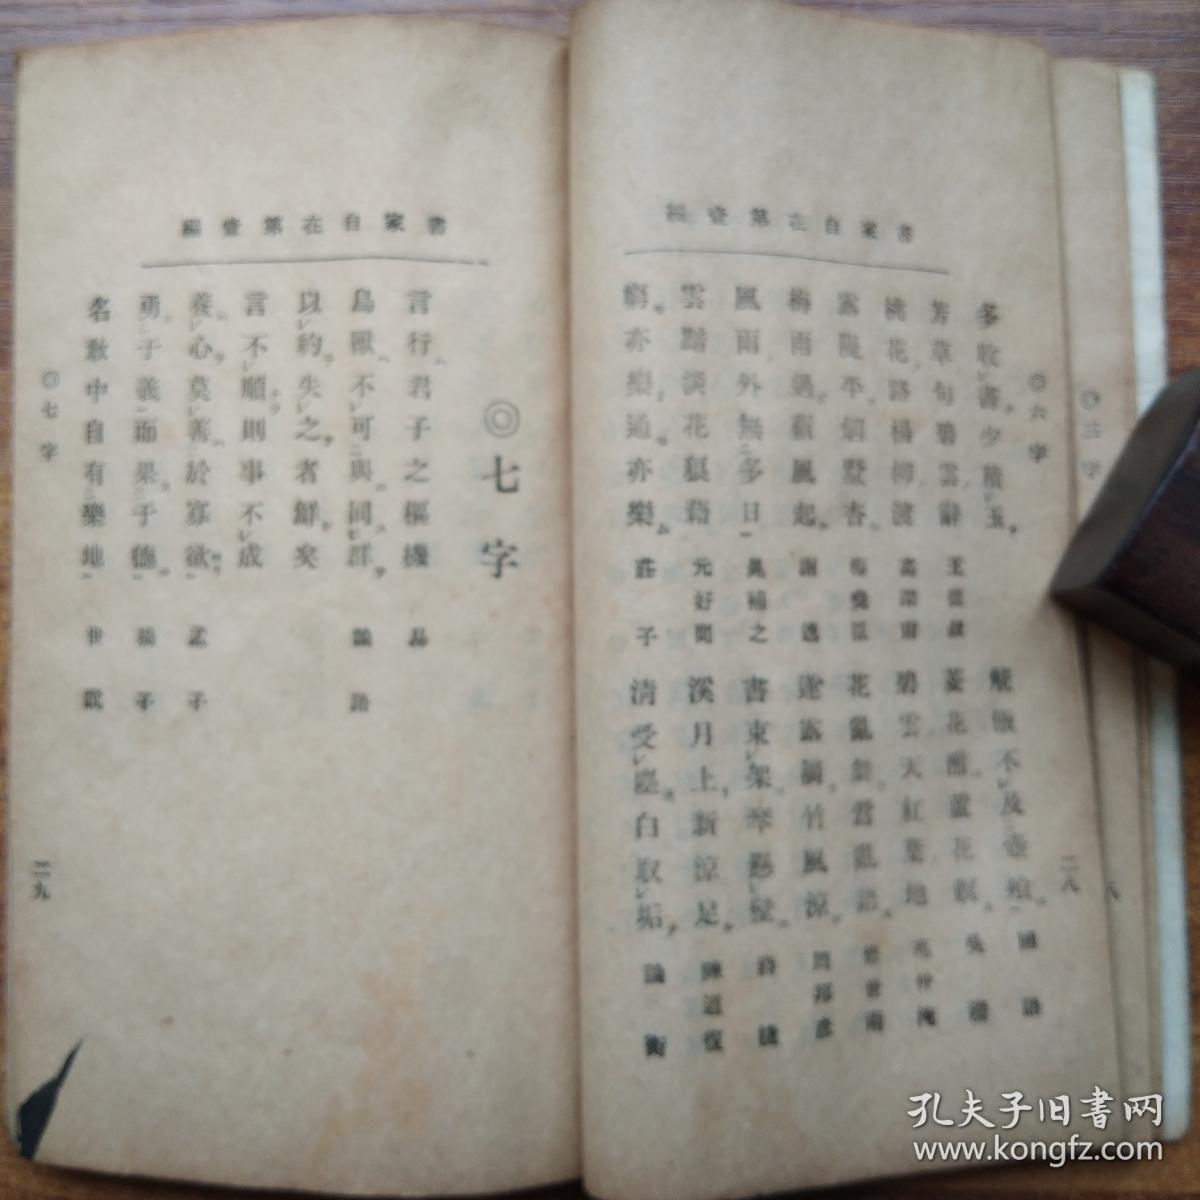 書家自在第壹編
◎六字
多收書少積玉
芳草句碧雲辭
桃花路楊柳渡
露隄平烟墅杳
梅雨過蘋風起
風雨外無多日
雲黯淡花狼藉
窮亦樂通亦樂
王
高深甫
謝逸
晁補之
元好問
莊子
觥飯不及壺飱
菱花醮蘆花瞑
碧雲天紅葉地
花亂舞鶯亂語
遊露滴竹風涼
書束架琴懸壁
溪月上新涼足
清受塵白取垢
國語
吳潛
周邦彥
蔣捷
陳道復
論衡
二八
書家自在第壹編
◎七字
言行君子之樞機
鳥獸不可與同群
以約失之者鮮矣
言不順則事不成
養心莫善於寡欲
勇于義而果于德
名教中自有樂地
易
論語
孟子
揚子
世說
◎七字
二九
孔夫子旧書网
www.kongfz.com